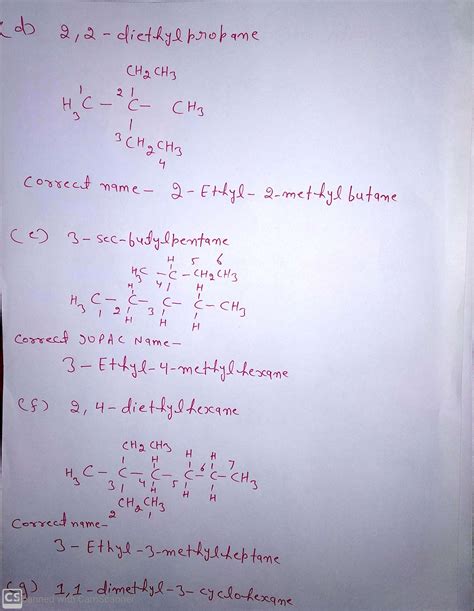 d) 2,2-diethylpropane
CH2CH3
1 2
H3C - C - CH3
3 CH2CH3
4
Correct name - 2-Ethyl-2-methylbutane
(e) 3-sec-butylpentane
H 5 6
H3C - C - CH2CH3
H 4 H H
H3C - C - C - C - CH3
1 2 3
H H H
Correct IUPAC Name -
3-Ethyl-4-methylhexane
(f) 2,4-diethylhexane
CH2CH3
H H H
H3C - C - C - C - C - CH3
3 4 5 6 7
H H H
CH2CH3
2 1
Correct name -
3-Ethyl-3-methylheptane
(g) 1,1-dimethyl-3-cyclohexane
CS Scanned with CamScanner